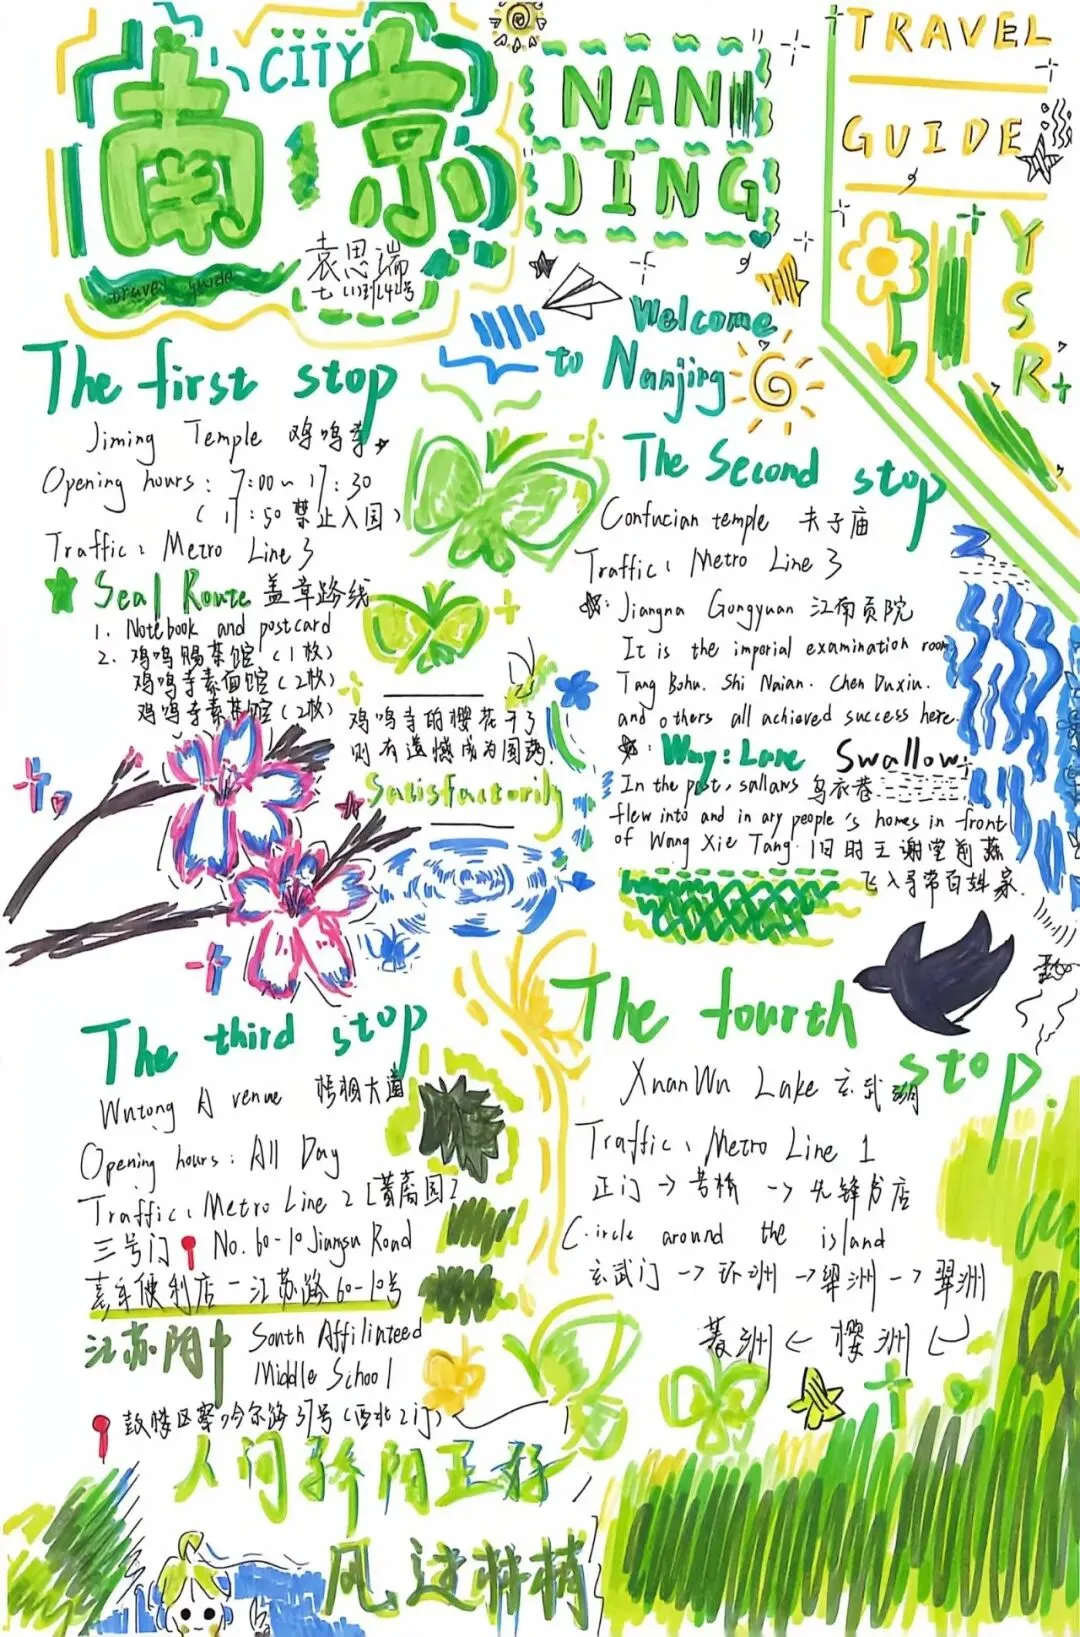 CITY
南京
travel guide
袁思瑞
NAN
JING
TRAVEL
GUIDE
YSR
Welcome
to Nanjing
The first stop
Jiming Temple 鸡鸣寺
Opening hours: 7:00~17:30
(17:50禁止入园)
Traffic: Metro Line 3
Seal Route 盖章路线
1. Notebook and postcard
2. 鸡鸣赐茶馆(1枚)
鸡鸣寺素面馆(2枚)
鸡鸣寺素茶馆(2枚)
鸡鸣寺的樱花开了
则有遗憾成为圆满!
Satisfactorily
The Second stop
Confucian temple 夫子庙
Traffic: Metro Line 3
Jiangna Gongyuan 江南贡院
It is the imperial examination room,
Tang Bohu. Shi Naian. Chen Duxiu.
and others all achieved success here.
Way: Lane Swallow
In the past, sallaws 乌衣巷
flew into and in ary people's homes in front
of Wang Xie Tang. 旧时王谢堂前燕
飞入寻常百姓家.
The third stop
Wutong A venue 梧桐大道
Opening hours: All Day
Traffic: Metro Line 2 [苜蓿园]
三号门 No. 60-10 Jiangsu Road
便利店—江苏路60-10号
江苏附中 South Affilinteed
Middle School
鼓楼区察哈尔路37号(西北2门)
The fourth
stop.
XuanWu Lake 玄武湖
Traffic: Metro Line 1
正门→古桥→先锋书店
Circle around the island
玄武门→环洲→梁洲→翠洲
菱洲←樱洲
人间骄阳正好
风过林梢